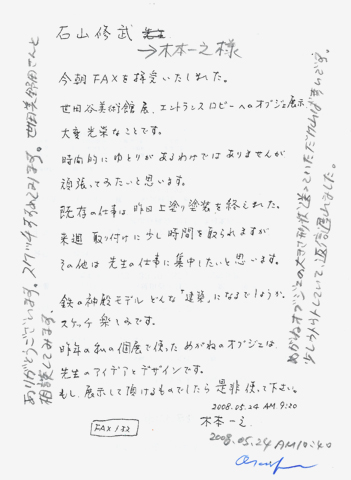 石山修武
→木本一之様
今朝FAXを拝受いたしました。
世田谷美術館展、エントランスロビーへのオブジェ展示、
大変光栄なことです。
時間的にゆとりがあるわけではありませんが
頑張ってみたいと思います。
既存の仕事は昨日上塗り塗装を終えました。
来週取り付けに少し時間を取られますが
その他は先生の仕事に集中したいと思います。
鉄の神殿モデルどんな「建築」になるでしょうか。
スケッチ楽しみです。
昨年の私の個展で使っためがねのオブジェは、
先生のアイデアとデザインです。
もし、展示して頂けるものでしたら是非使って下さい。
2008.05.24 AM 9:20
木本一之.
FAX 132
2008.05.24 AM10:40
めがねオブジェの大きさ形状送っていただければ幸いです。
少しうとうとしていて、返信遅れました。
ありがとうございます。スケッチすすめてみます。世田美野田さんと
相談してみます。